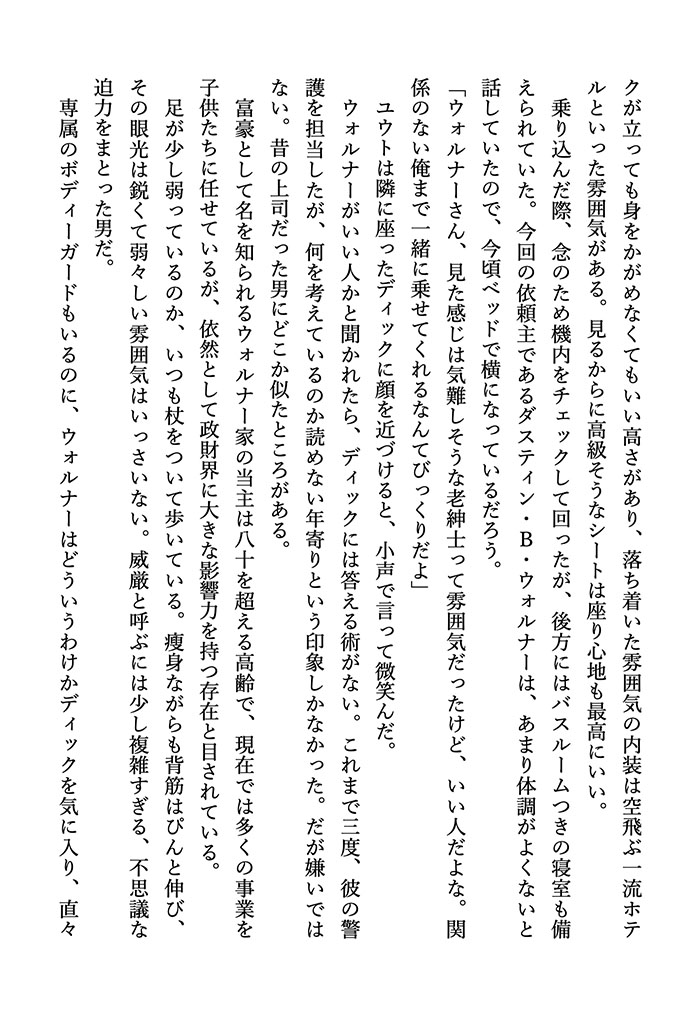 クが立っても身をかがめなくてもいい高さがあり、落ち着いた雰囲気の内装は空飛ぶ一流ホテ
ルといった雰囲気がある。見るからに高級そうなシートは座り心地も最高にいい。
乗り込んだ際、念のため機内をチェックして回ったが、後方にはバスルームつきの寝室も備
えられていた。今回の依頼主であるダスティン・B・ウォルナーは、あまり体調がよくないと
話していたので、今頃ベッドで横になっているだろう。
「ウォルナーさん、見た感じは気難しそうな老紳士って雰囲気だったけど、いい人だよな。関
係のない俺まで一緒に乗せてくれるなんてびっくりだよ」
ユウトは隣に座ったディックに顔を近づけると、小声で言って微笑んだ。
ウォルナーがいい人かと聞かれたら、ディックには答える術がない。これまで三度、彼の警
護を担当したが、何を考えているのか読めない年寄りという印象しかなかった。だが嫌いでは
ない。昔の上司だった男にどこか似たところがある。
富豪として名を知られるウォルナー家の当主は八十を超える高齢で、現在では多くの事業を
子供たちに任せているが、依然として政財界に大きな影響力を持つ存在と目されている。
足が少し弱っているのか、いつも杖をついて歩いている。痩身ながらも背筋はぴんと伸び、
その眼光は鋭くて弱々しい雰囲気はいっさいない。威厳と呼ぶには少し複雑すぎる、不思議な
迫力をまとった男だ。
専属のボディーガードもいるのに、ウォルナーはどういうわけかディックを気に入り、直々